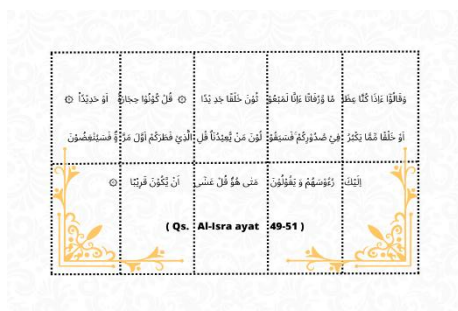 وَقَالُوْٓا ءَاِذَا كُنَّا عِظَامًا وَّرُفَاتًا ءَاِنَّا لَمَبْعُوْثُوْنَ خَلْقًا جَدِيْدًا ۞ قُلْ كُوْنُوْا حِجَارَةً اَوْ حَدِيْدًاۙ ۞
اَوْ خَلْقًا مِّمَّا يَكْبُرُ فِيْ صُدُوْرِكُمْۚ فَسَيَقُوْلُوْنَ مَنْ يُّعِيْدُنَاۗ قُلِ الَّذِيْ فَطَرَكُمْ اَوَّلَ مَرَّةٍۚ فَسَيُنْغِضُوْنَ
اِلَيْكَ رُءُوْسَهُمْ وَيَقُوْلُوْنَ مَتٰى هُوَۗ قُلْ عَسٰٓى اَنْ يَّكُوْنَ قَرِيْبًا ۞
( Qs. Al-Isra ayat 49-51 )